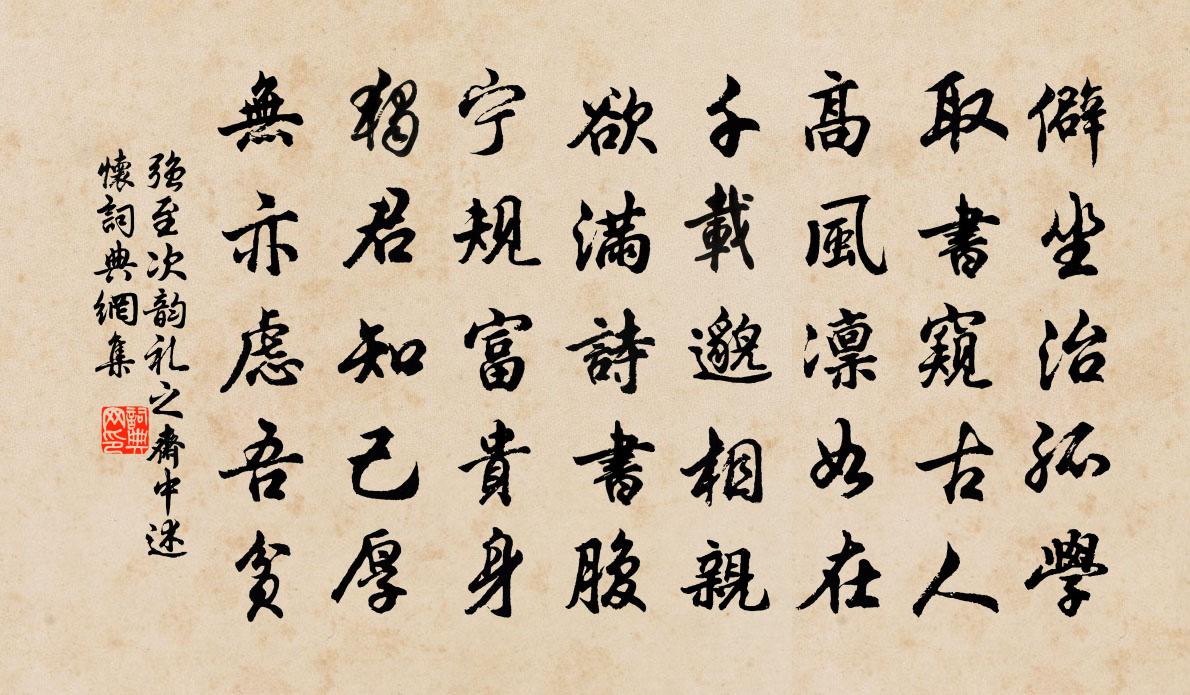 僻坐治孤學
取書窺古人
高風凛如在
千載邈相親
欲滿詩書腹
宁規富貴身
獨君知己厚
無亦慮吾貧
强至次韵礼之齋中述
懷詞典網集
詞典
网印